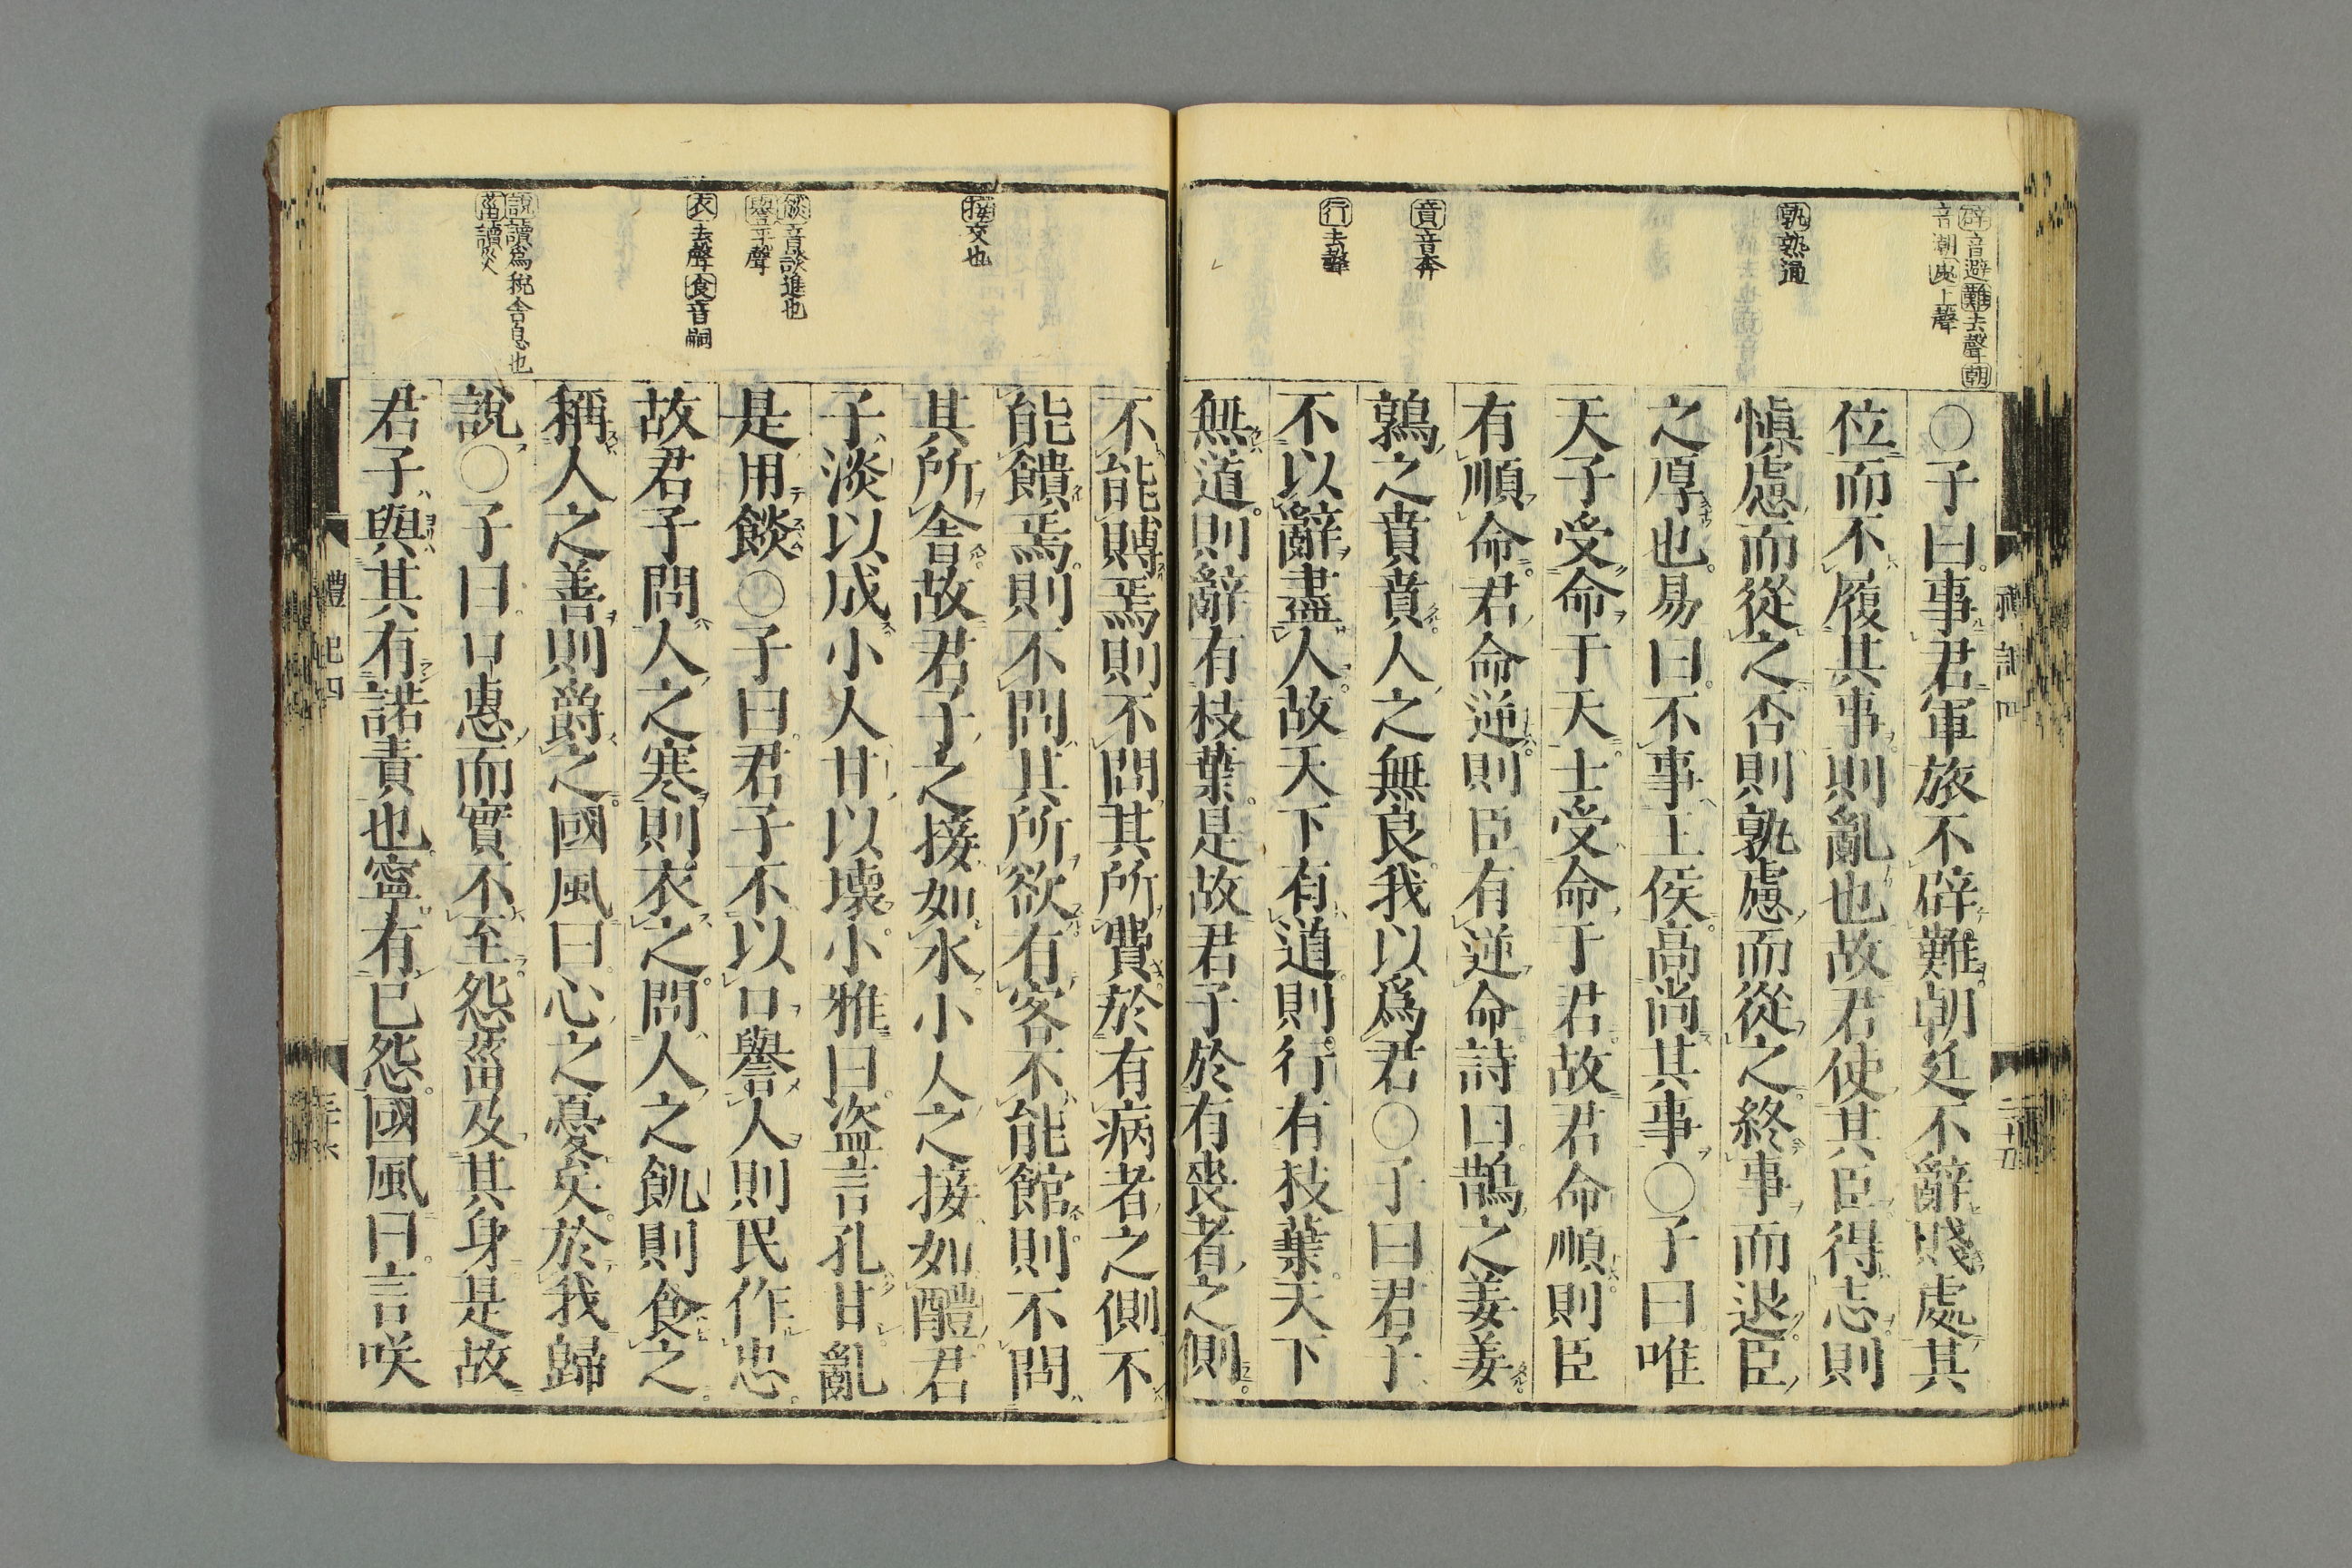 辟音避難去聲朝
音潮處上聲
孰熟通
賁音奔
行去聲
〇子曰事君軍旅不辟難朝廷不辭賤處其
位而不履其事則亂也故君使其臣得志則
愼慮而從之否則孰慮而從之終事而退臣
之厚也易曰不事王侯高尚其事〇子曰唯
天子受命于天士受命于君故君命順則臣
有順命君命逆則臣有逆命詩曰鵲之姜姜
鶉之賁賁人之無良我以爲君〇子曰君子
不以辭盡人故天下有道則行有枝葉天下
無道則辭有枝葉是故君子於有喪者之側
禮記四
二十五
接交也
餤音談進也
譽平聲
衣去聲食音嗣
說讀爲稅舍息也
菑讀災
不能賻焉則不問其所費於有病者之側不
能饋焉則不問其所欲有客不能館則不問
其所舍故君子之接如水小人之接如醴君
子淡以成小人甘以壞小雅曰盜言孔甘亂
是用餤〇子曰君子不以口譽人則民作忠
故君子問人之寒則衣之問人之飢則食之
稱人之善則爵之國風曰心之憂矣於我歸
說〇子曰口惠而實不至怨菑及其身是故
君子與其有諾責也寧有已怨國風曰言咲
禮記四